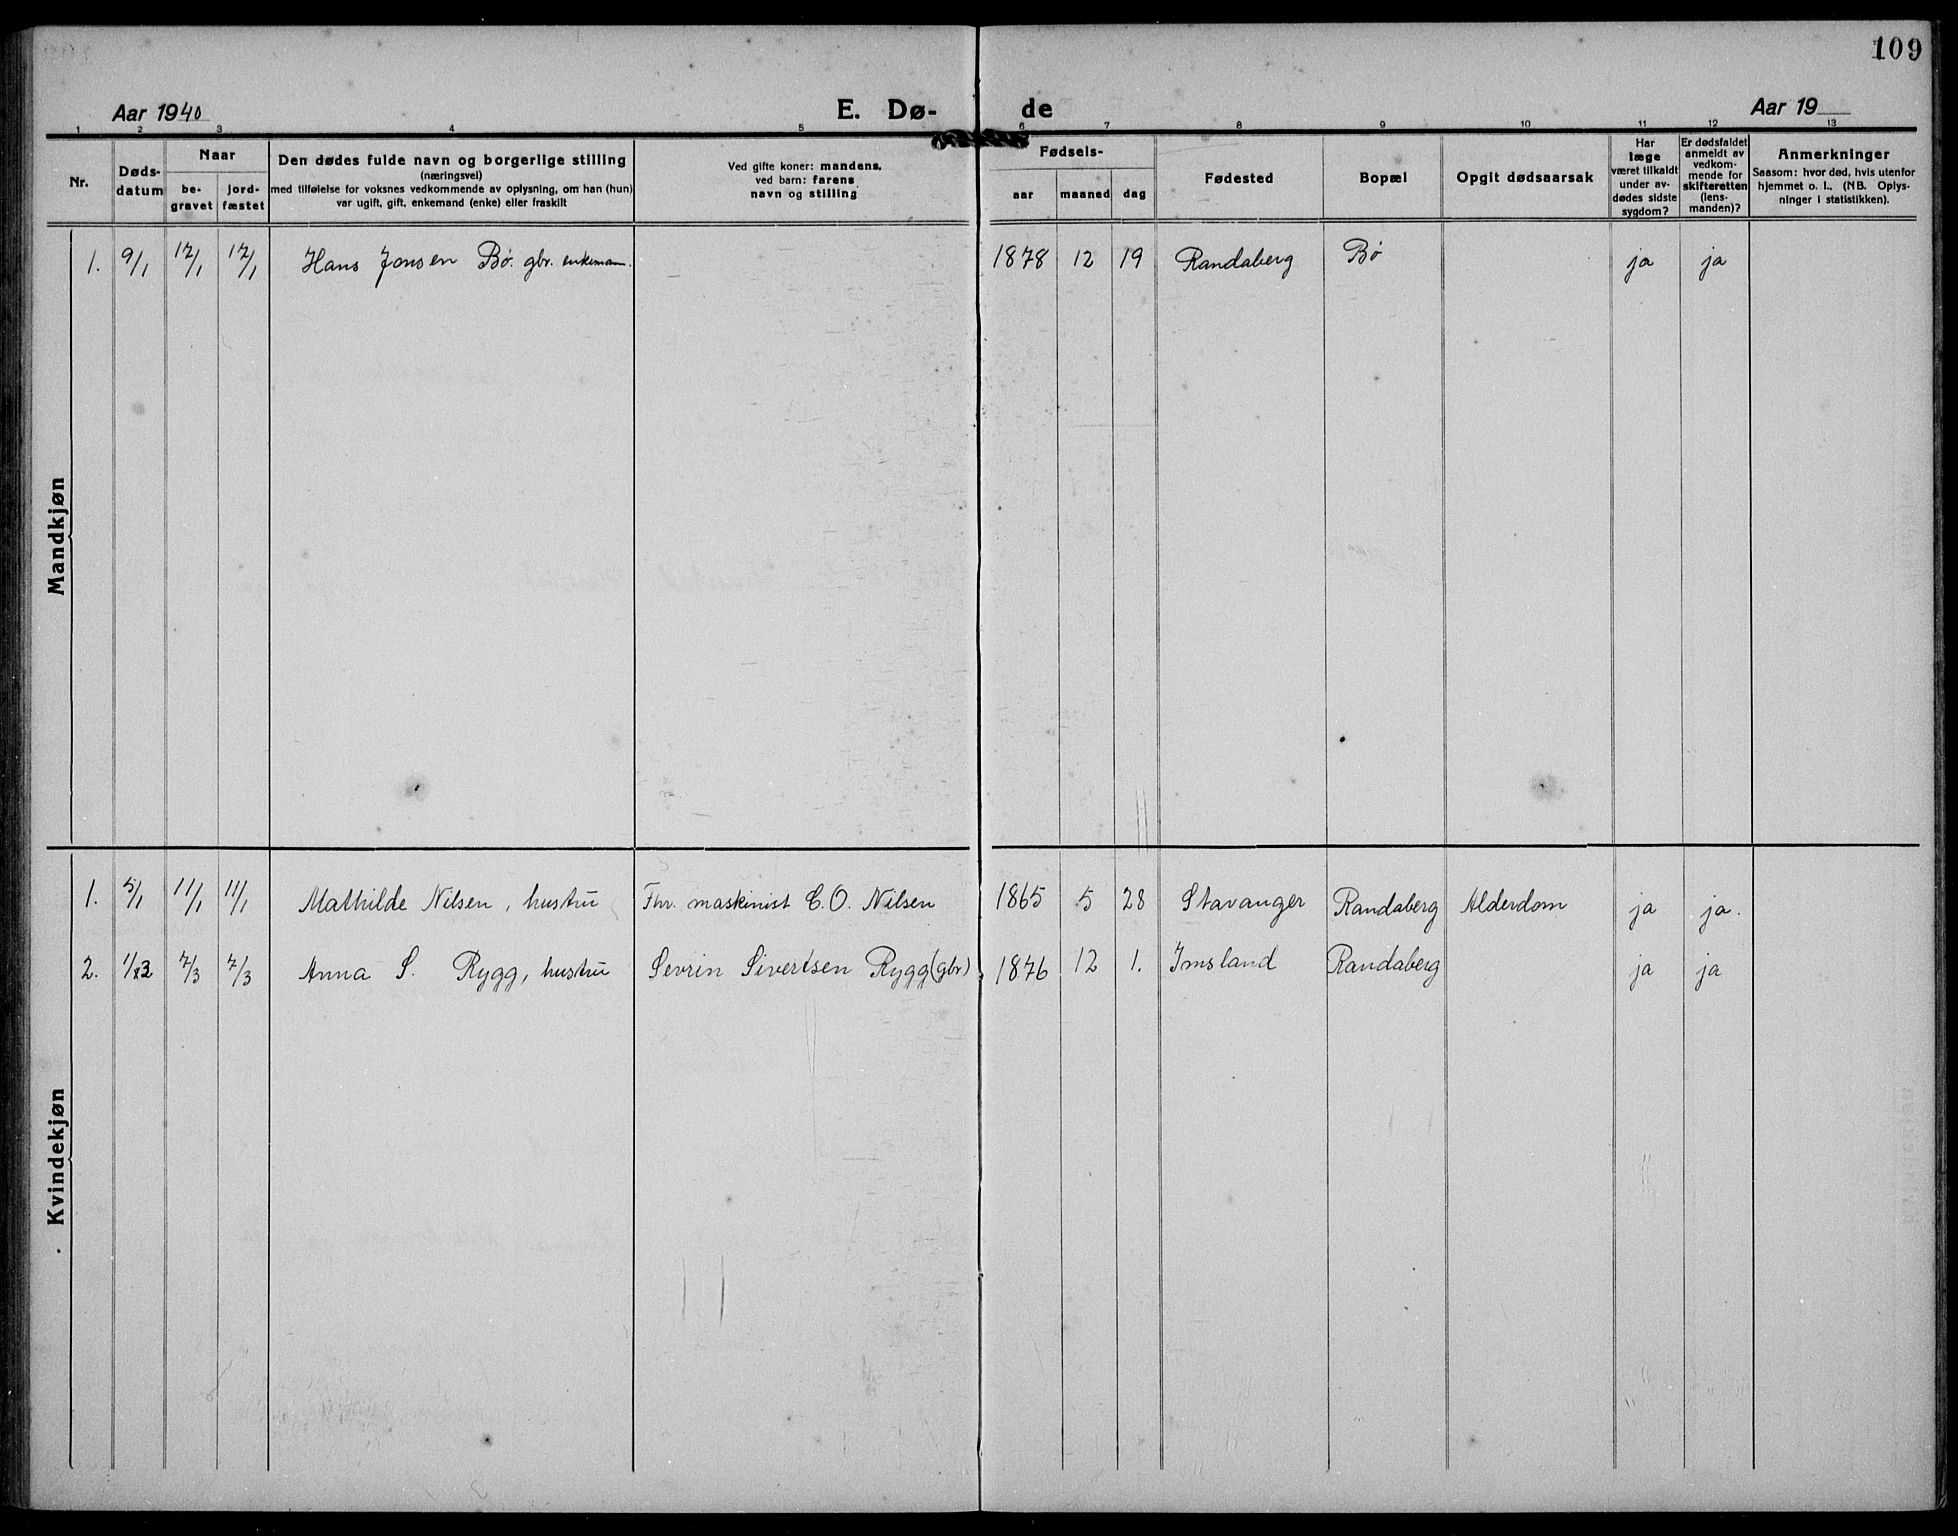 109
Aar 1940 E. Dø- de Aar 19
1 2 3 4 5 6 7 8 9 10 11 12 13
Nr.
Døds-
datum
Naar
be-
gravet
jord-
fæstet
Den dødes fulde navn og borgerlige stilling
(næringsvei)
med tilføielse for voksnes vedkommende av oplysning, om han (hun)
var ugift, gift, enkemand (enke) eller fraskilt
Ved gifte koner: mandens,
ved barn: farens
navn og stilling
Fødsels-
aar maaned dag
Fødested
Bopæl
Opgit dødsaarsak
Har
læge
været tilkaldt
under av-
dødes sidste
sygdom?
Er dødsfaldet
anmeldt av
vedkom-
mende for
skifteretten
(lens-
manden)?
Anmerkninger
Saasom: hvor død, hvis utenfor
hjemmet o. l.. (NB. Oplys-
ninger i statistikken).
Mandkjøn
1. 9/1 17/1 17/1 Hans Jonsen Bø. gbr. enkemann. 1878 12 19 Randaberg Bø ja ja
Kvindekjøn
1. 5/1 11/1 11/1 Mathilde Nilsen, hustru Fhr. maskinist C.O. Nilsen 1865 5 28 Stavanger Randaberg Alderdom ja ja.
2. 7/3 7/3 Anna S. Rygg, hustru Sevrin Sivertsen Rygg (gbr) 1876 12 1. Imsland Randaberg ja ja